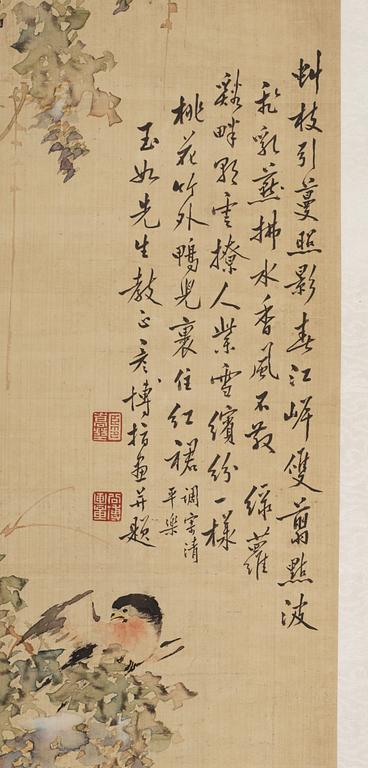 虯枝引蔓照影春江岸雙翦點波
飛乳燕拂水香風不散綠蘿
谿畔雲撩人紫雪繽紛一樣
桃花竹外鴨兒裏住紅裙
調寄清
平樂
玉如先生教正彦博指畫并題